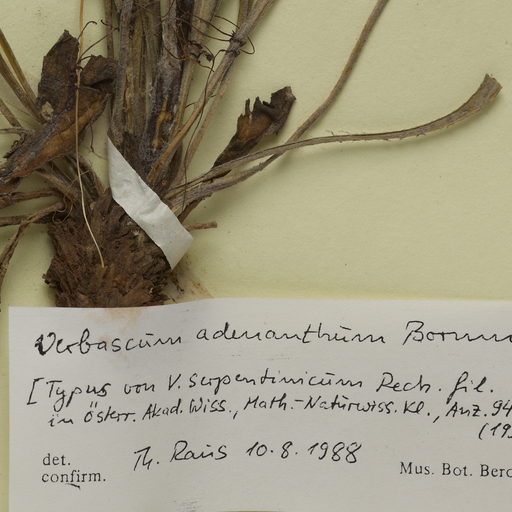 Verbascum adenanthum Bornm
[Typus von V. serpentinicum Rech. fil.
in Österr. Akad. Wiss., Math.-Naturwiss. Kl., Anz. 94
(19
det.
confirm. Th. Raus 10.8.1988
Mus. Bot. Bero